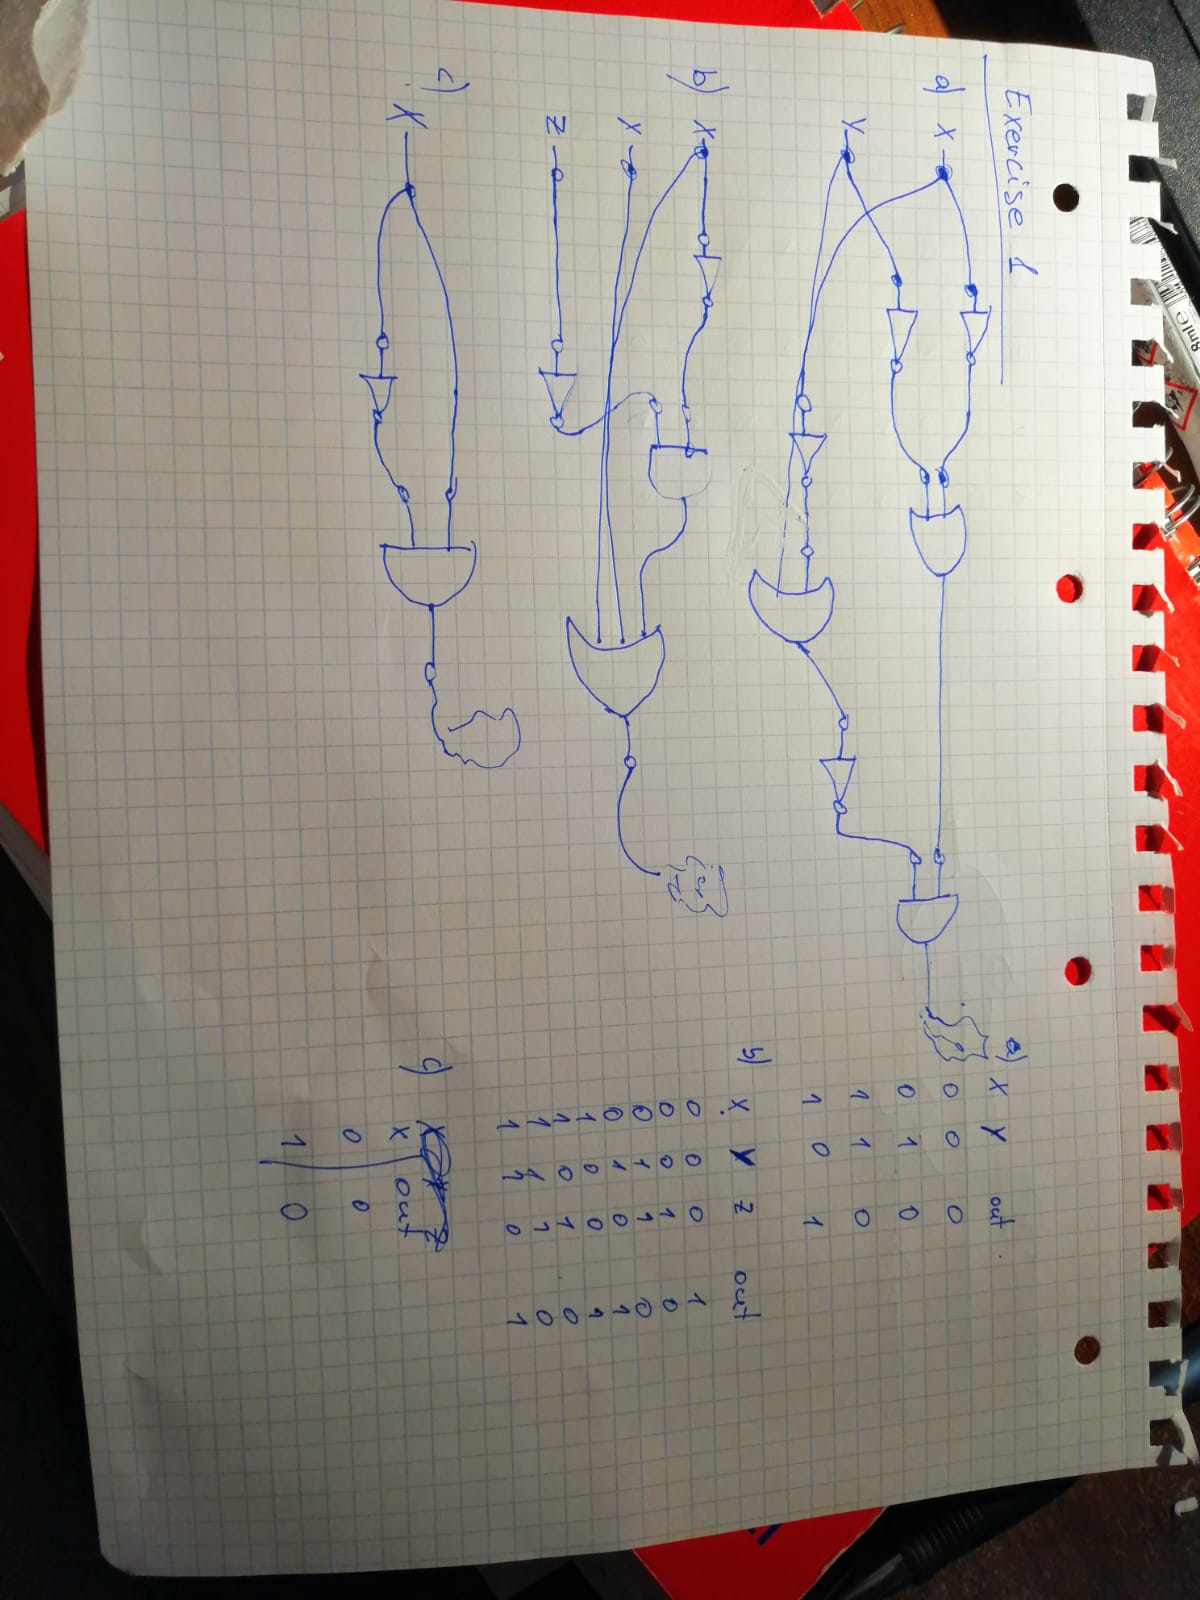 Exercise 1
a) X
Y
b) X
Y
Z
c) X
a) X Y out
0 0 0
0 1 0
1 1 0
1 0 1
b) X Y Z out
0 0 0 1
0 0 1 0
0 1 1 0
0 1 0 1
1 0 0 1
1 0 1 0
1 1 1 0
1 1 0 1
c)
X out
0 0
1 0